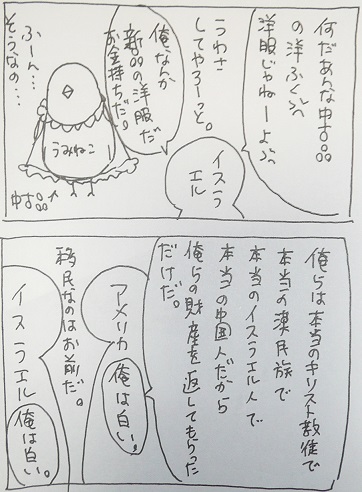 何だあんな中古品
の洋ふくぶぶ
洋服じゃねーよぶぶ
うわさ
してやろーっと。
イスラ
エル
俺なんか
新品の洋服だ
お金持ちだ。
ふーん…
そうなの…
うみねこ
中古品
俺らは本当のキリスト教徒で
本当の漢民族で
本当のイスラエル人で
本当の中国人だから
俺らの財産を返してもらった
だけだ。
アメリカ
俺は白い。
移民なのはお前だ。
イスラエル
俺は白い。